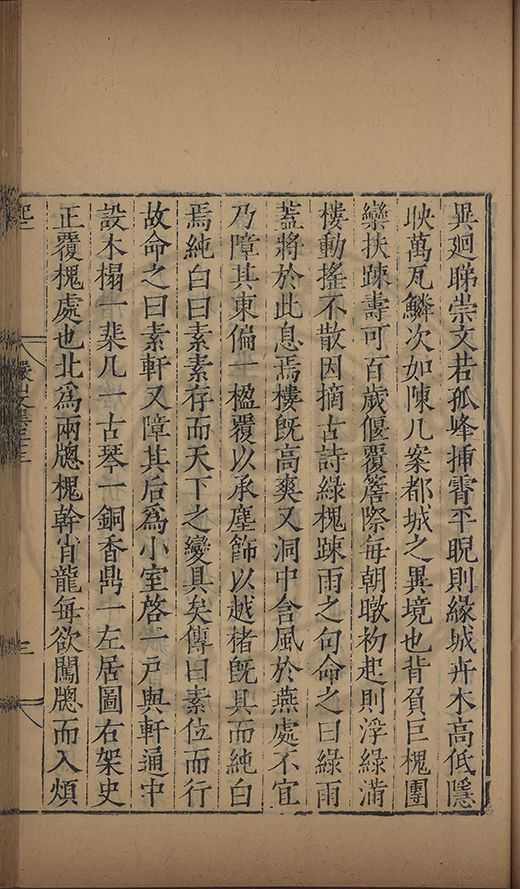 異迴睇崇文若孤峰揷霄平睨則緣城卉木高低隱
映萬瓦鱗次如陳几案都城之異境也背負巨槐團
欒扶踈壽可百歲偃覆簷際每朝暾初起則浮綠滿
樓動搖不散因摘古詩綠槐踈雨之句命之曰綠雨
蓋將於此息焉樓旣高爽又洞中含風於燕處不宜
乃障其東偏一楹覆以承塵飾以越楮旣具而純白
焉純白曰素素存而天下之變具矣傳曰素位而行
故命之曰素軒又障其后爲小室啓一戶與軒通中
設木榻一棐几一古琴一銅香鼎一左居圖右架史
正覆槐處也北爲兩牕槐幹肖龍每欲闖牕而入煩